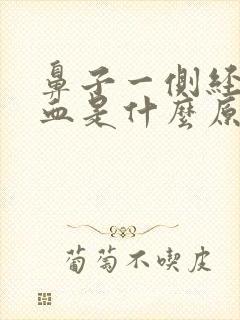 鼻子一側経
血是什麼原
葡萄不喫皮